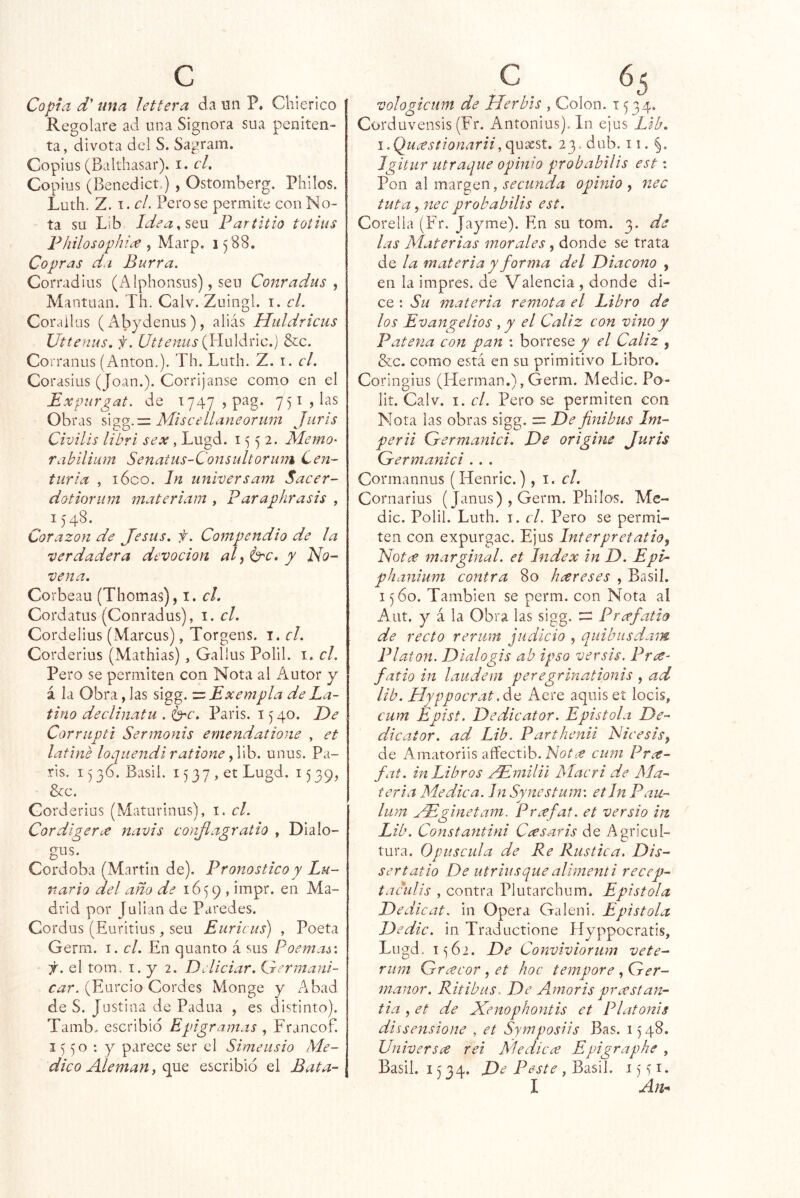 C
Copia d' una lettera da un P. Chierico
Regolare ad una Signora sua peniten-
ta, divota del S. Sagram.
Copius (Balthasar). 1. cl.
Copius (Benedict.) , Ostomberg. Philos.
Luth. Z. 1. cl. Pero se permite con No-
ta su Lib Idea, seu Partitio totius
Philosophiæ , Marp. 1588.
Copras da Burra.
Corradius (Alphonsus) , seu Conradus ,
Mantuan. Th. Calv. Zuingl. 1. cl.
Corallus (Abydenus), aliás Huldricus
Uttenus. ℣. Uttenus (Huldric.) &c.
Corranus (Anton.). Th. Luth. Z. 1. cl.
Corasius (Joan.). Corrijanse como en el
Expurgat. de 1747 , pag. 751 , las
Obras sigg. = Miscellaneorum Juris
Civilis libri sex , Lugd. 1552. Memo-
rabilium Senatus-Consultorum Cen-
turia , 1600. In universam Sacer-
dotiorum materiam , Paraphrasis ,
1548.
Corazon de Jesus. ℣. Compendio de la
verdadera devocion al, &c. y No-
vena.
Corbeau (Thomas), 1. cl.
Cordatus (Conradus), 1. cl.
Cordelius (Marcus), Torgens. 1. cl.
Corderius (Mathias) , Gallus Polil. 1. cl.
Pero se permiten con Nota al Autor y
á la Obra, las sigg. = Exempla de La-
tino declinatu . &c. Paris. 1540. De
Corrupti Sermonis emendatione , et
latinè loquendi ratione, lib. unus. Pa-
ris. 1536. Basil. 1537 , et Lugd. 1539,
&c.
Corderius (Maturinus), 1. cl.
Cordigeræ navis conflagratio , Dialo-
gus.
Cordoba (Martin de). Pronostico y Lu-
nario del año de 1659 , impr. en Ma-
drid por Julian de Paredes.
Cordus (Euritius, seu Euricus) , Poeta
Germ. 1. cl. En quanto á sus Poemas:
℣. el tom. 1. y 2. Deliciar. Germani-
car. (Eurcio Cordes Monge y Abad
de S. Justina de Padua , es distinto).
Tamb. escribió Epigramas , Francof.
1550 : y parece ser el Simeusio Me-
dico Aleman, que escribió el Bata-
C 65
vologicum de Herbis , Colon. 1534.
Corduvensis (Fr. Antonius). In ejus Lib.
1. Quæstionarii, quæst. 23. dub. 11. §.
Igitur utraque opinio probabilis est :
Pon al margen, secunda opinio , nec
tuta, nec probabilis est.
Corella (Fr. Jayme). En su tom. 3. de
las Materias morales, donde se trata
de la materia y forma del Diacono ,
en la impres. de Valencia , donde di-
ce : Su materia remota el Libro de
los Evangelios , y el Caliz con vino y
Patena con pan : borrese y el Caliz ,
&c. como está en su primitivo Libro.
Coringius (Herman.), Germ. Medic. Po-
lit. Calv. 1. cl. Pero se permiten con
Nota las obras sigg. = De finibus Im-
perii Germanici. De origine Juris
Germanici . . .
Cormannus (Henric.) , 1. cl.
Cornarius (Janus) , Germ. Philos. Me-
dic. Polil. Luth. 1. cl. Pero se permi-
ten con expurgac. Ejus Interpretatio,
Notæ marginal. et Index in D. Epi-
phanium contra 80 hæreses , Basil.
1560. Tambien se perm. con Nota al
Aut. y á la Obra las sigg. = Præfatio
de recto rerum judicio , quibusdam
Platon. Dialogis ab ipso versis. Præ-
fatio in laudem peregrinationis , ad
lib. Hyppocrat. de Aere aquis et locis,
cum Epist. Dedicator. Epistola De-
dicator. ad Lib. Parthenii Nicesis,
de Amatoriis affectib. Notæ cum Præ-
fat. in Libros Æmilii Macri de Ma-
teria Medica. In Synestum: et In Pau-
lum Æginetam. Præfat. et versio in
Lib. Constantini Cæsaris de Agricul-
tura. Opuscula de Re Rustica. Dis-
sertatio De utriusque alimenti recep-
taculis , contra Plutarchum. Epistola
Dedicat. in Opera Galeni. Epistola
Dedic. in Traductione Hyppocratis,
Lugd. 1562. De Conviviorum vete-
rum Græcor , et hoc tempore , Ger-
manor. Ritibus. De Amoris præstan-
tia , et de Xenophontis et Platonis
dissensione , et Symposiis Bas. 1548.
Universæ rei Medicæ Epigraphe ,
Basil. 1534. De Peste , Basil. 1551.
I An-